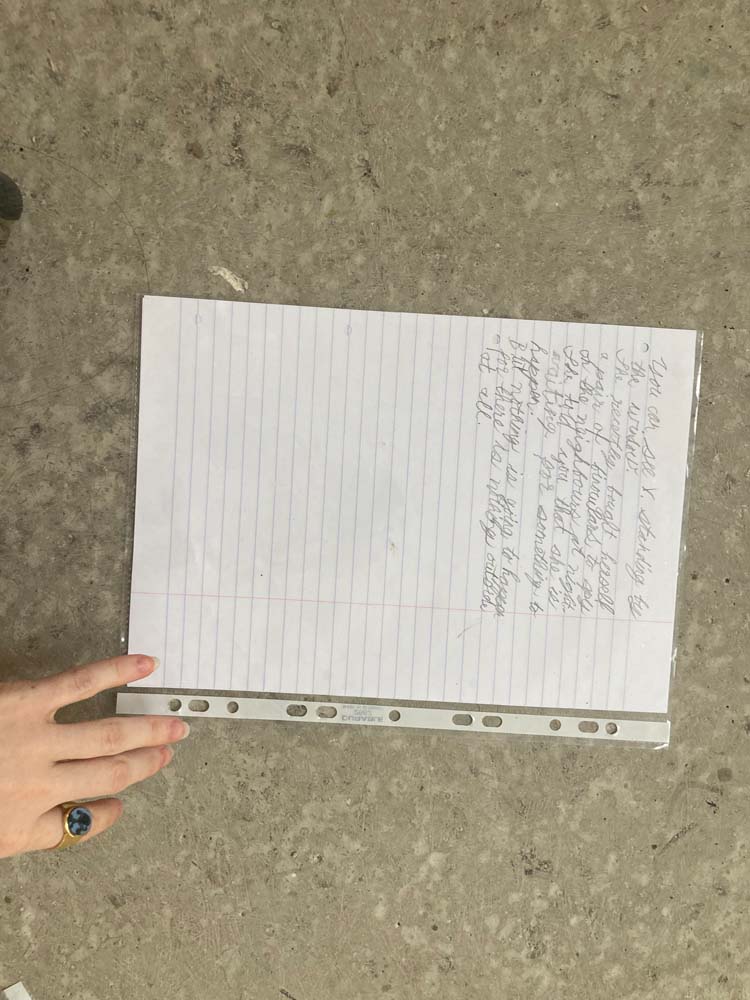 • You can see Y. standing by
the window.
She recently bought herself
a pair of binoculars to spy
on the neighbours at night.
She told you that she is
waiting for something to
happen.
But nothing is going to happen
• for there is nothing outside
at all.
DURABLE